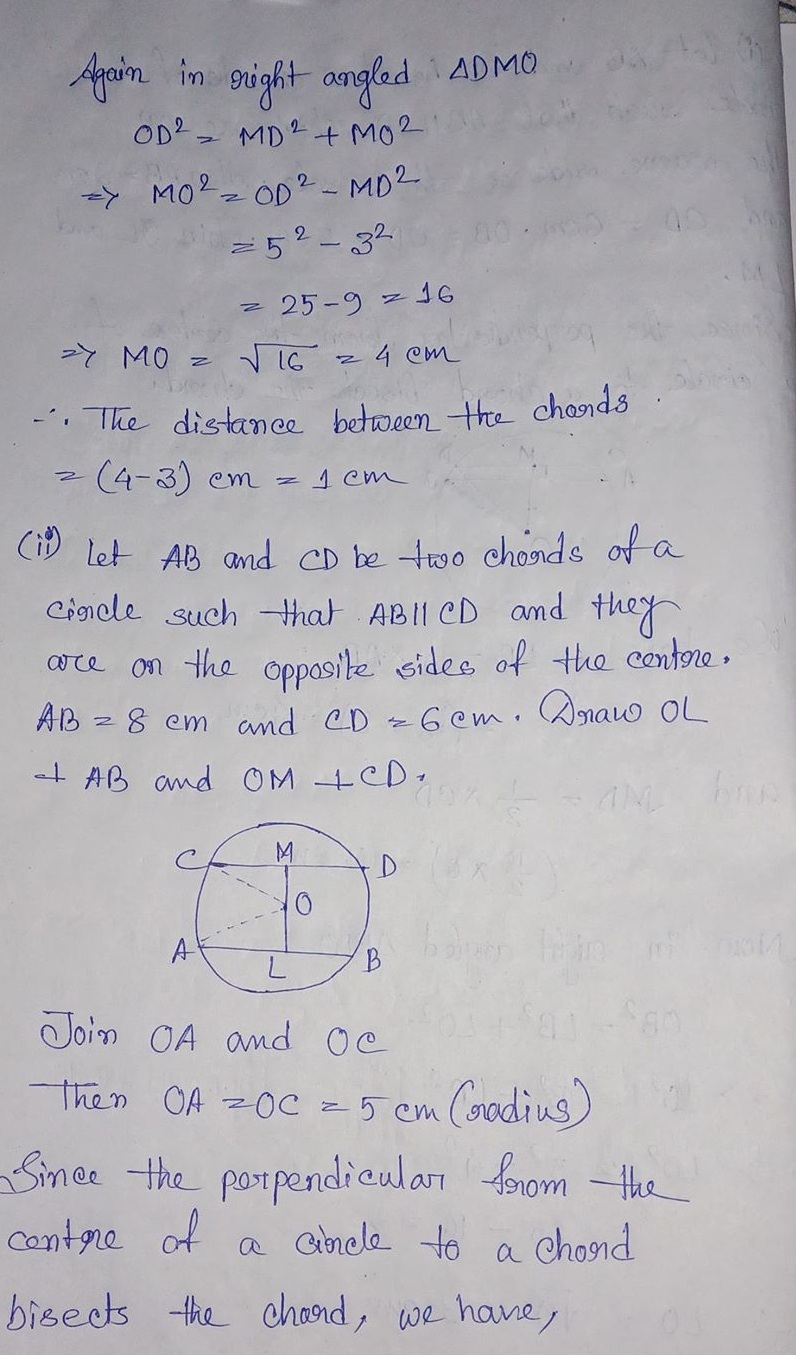 Again in right angled ΔDMO
OD² = MD² + MO²
=> MO² = OD² - MD²
= 5² - 3²
= 25-9 = 16
=> MO = √16 = 4 cm
∴ The distance between the chords
= (4-3) cm = 1 cm
(ii) Let AB and CD be two chords of a
circle such that AB || CD and they
are on the opposite sides of the centre.
AB = 8 cm and CD = 6 cm. Draw OL
⊥ AB and OM ⊥ CD.
C M D
O
A L B
Join OA and OC
Then OA = OC = 5 cm (radius)
Since the perpendicular from the
centre of a circle to a chord
bisects the chord, we have,